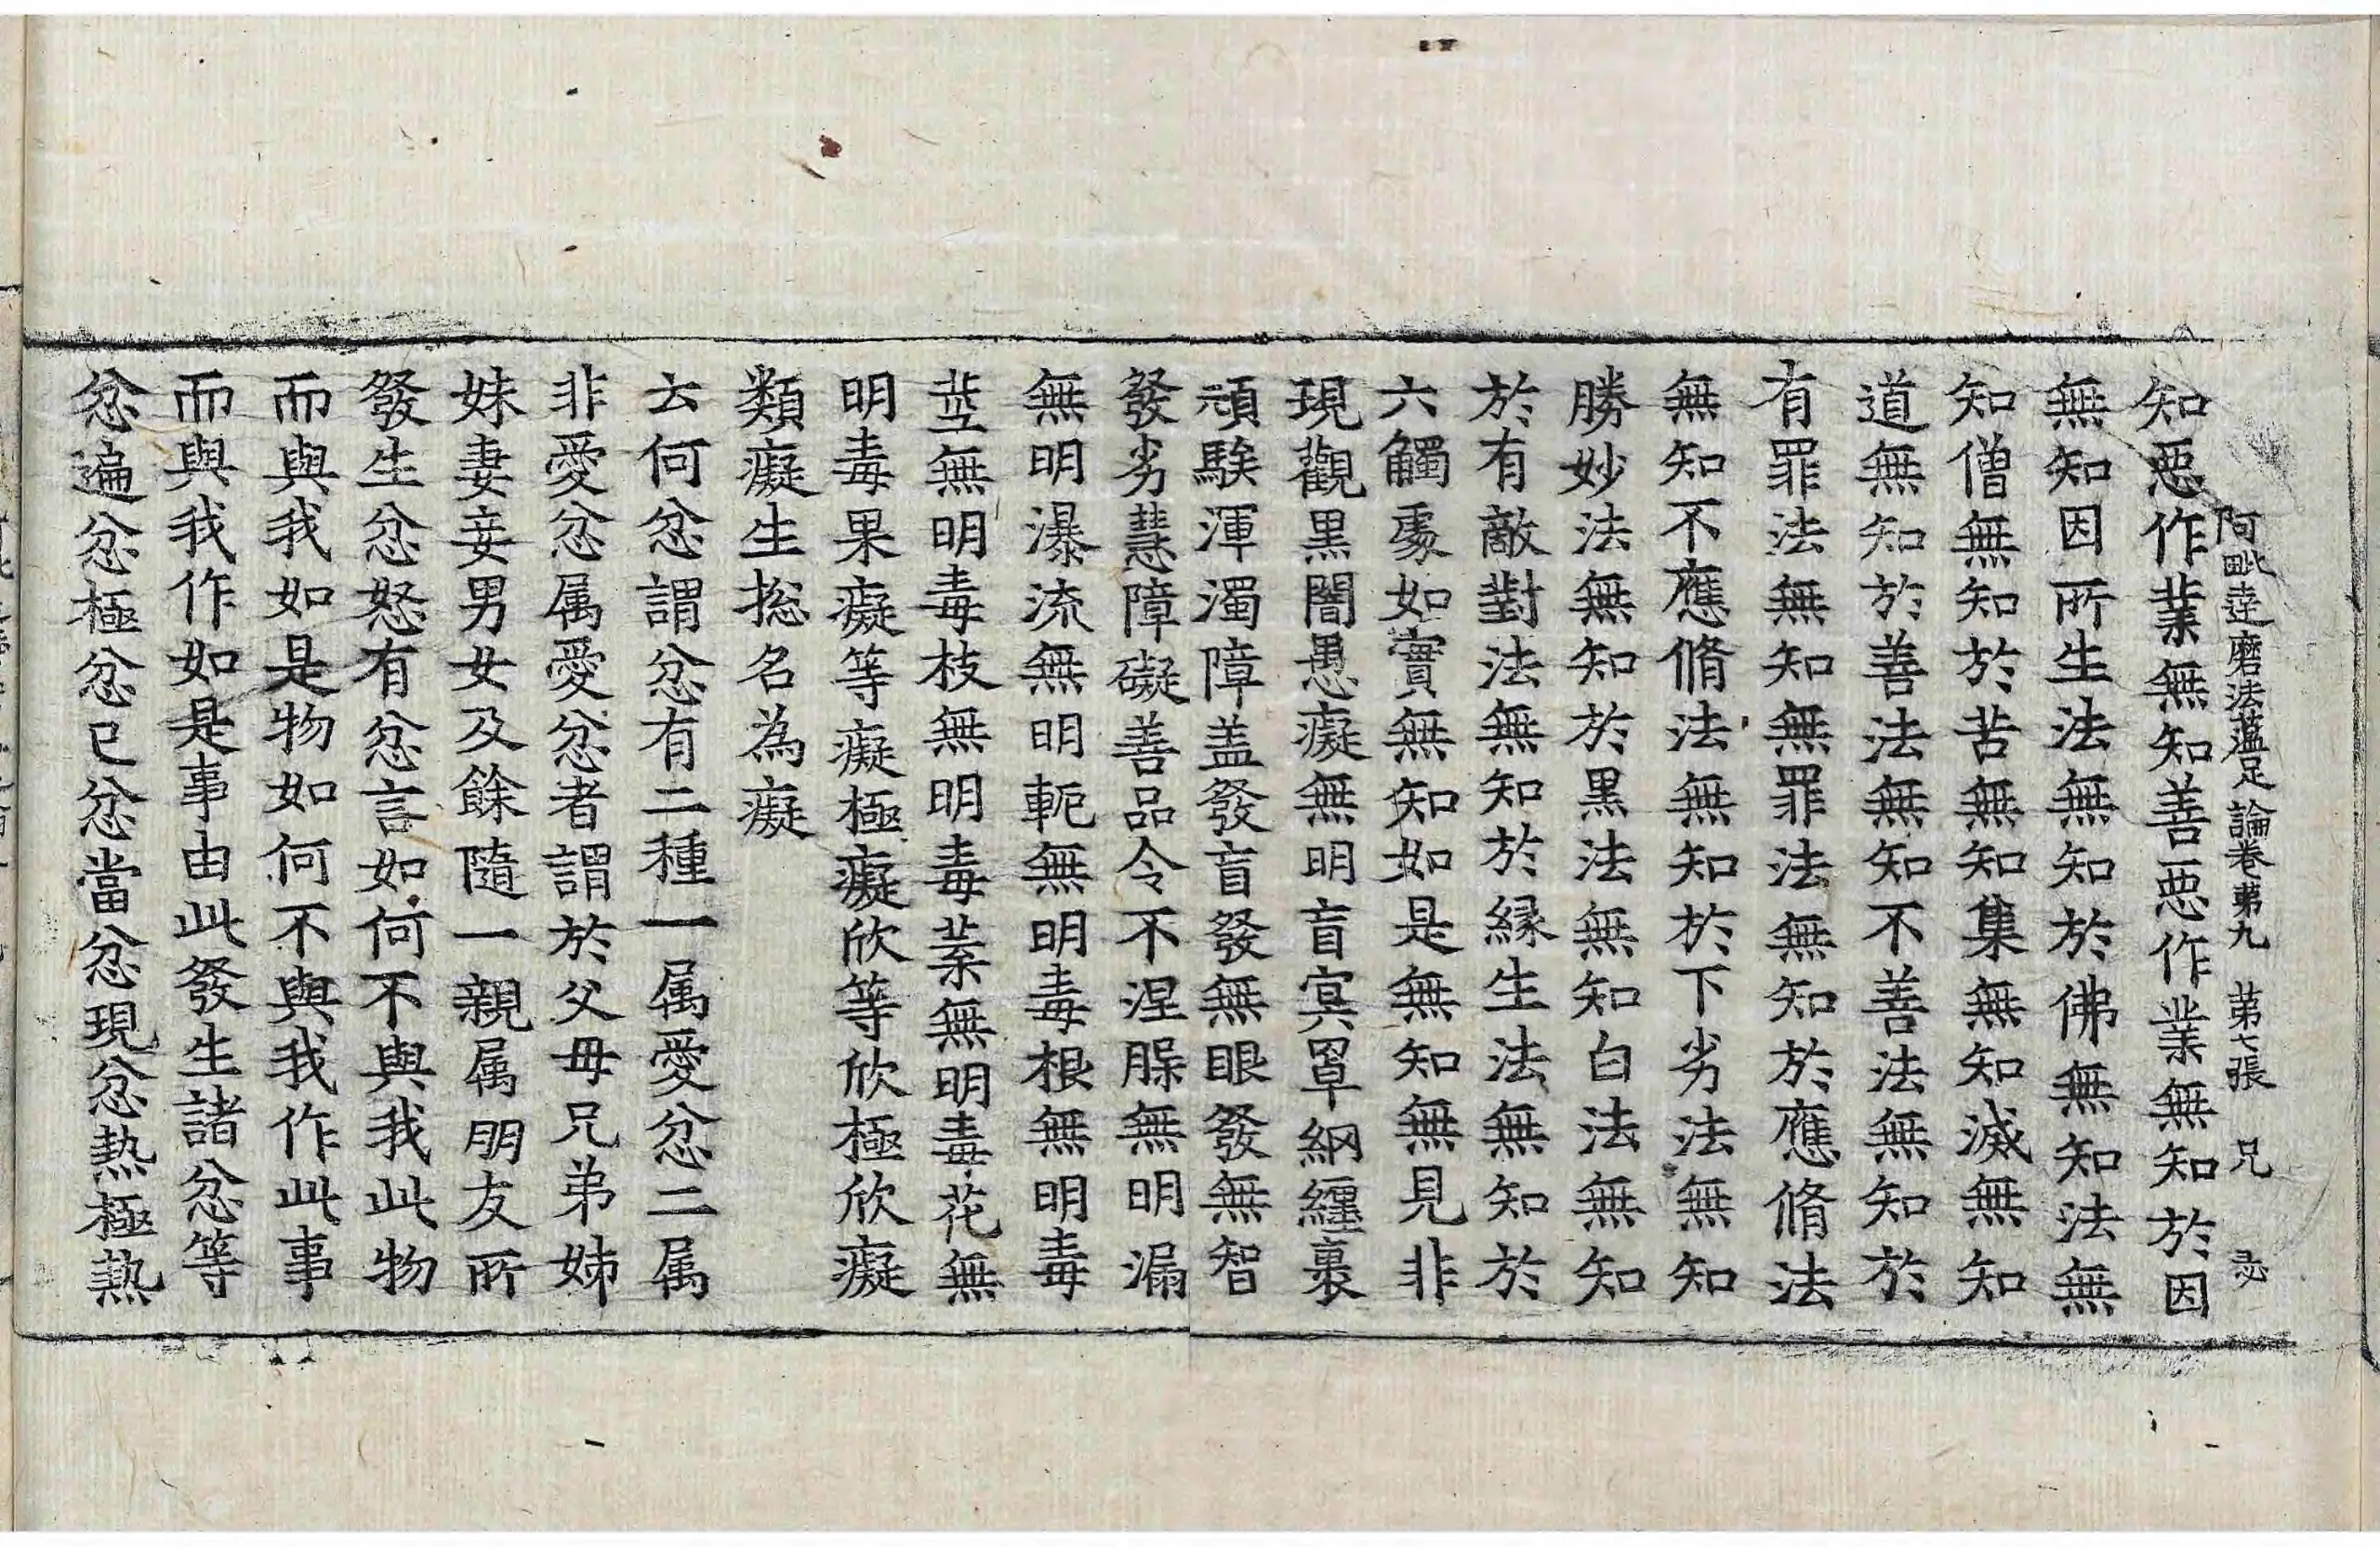 阿毗達磨法蘊足論卷第九　第七張　兄　恣
知惡作業無知善惡作業無知於因
無知因所生法無知於佛無知法無
知僧無知於苦無知集無知滅無知
道無知於善法無知不善法無知於
有罪法無知無罪法無知於應脩法
無知不應脩法無知於下劣法無知
勝妙法無知於黒法無知白法無知
於有敵對法無知於緣生法無知於
六觸處如實無知如是無知無見非
現觀黒闇愚癡無明盲冥罩網纏裹
頑騃渾濁障盖發盲發無眼發無智
發劣慧障礙善品令不涅槃無明漏
無明瀑流無明軛無明毒根無明毒
莖無明毒枝無明毒葉無明毒花無
明毒果癡等癡極癡欣等欣極欣癡
類癡生捴名為癡
云何忿謂忿有二種一属愛忿二属
非愛忿属愛忿者謂於父母兄弟姊
妹妻妾男女及餘隨一親属朋友所
發生忿怒有忿言如何不與我此物
而與我如是物如何不與我作此事
而與我作如是事由此發生諸忿等
忿遍忿極忿已忿當忿現忿熱極熱